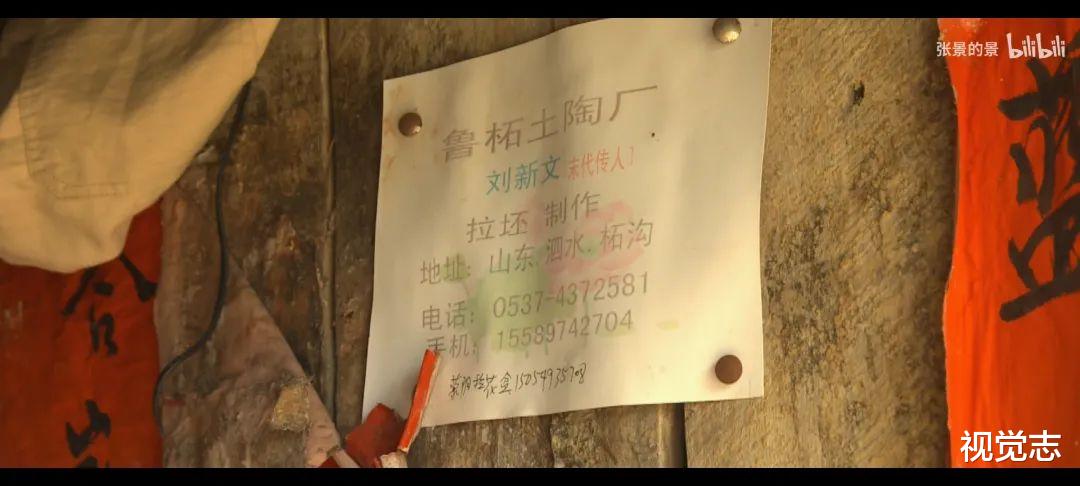 张景的景 bilibili
鲁柘土陶厂
刘新文 末代传人
拉坯 制作
地址: 山东.泗水.柘沟
电话: 0537-4372581
手机: 15589742704
花盒15054935708
视觉志